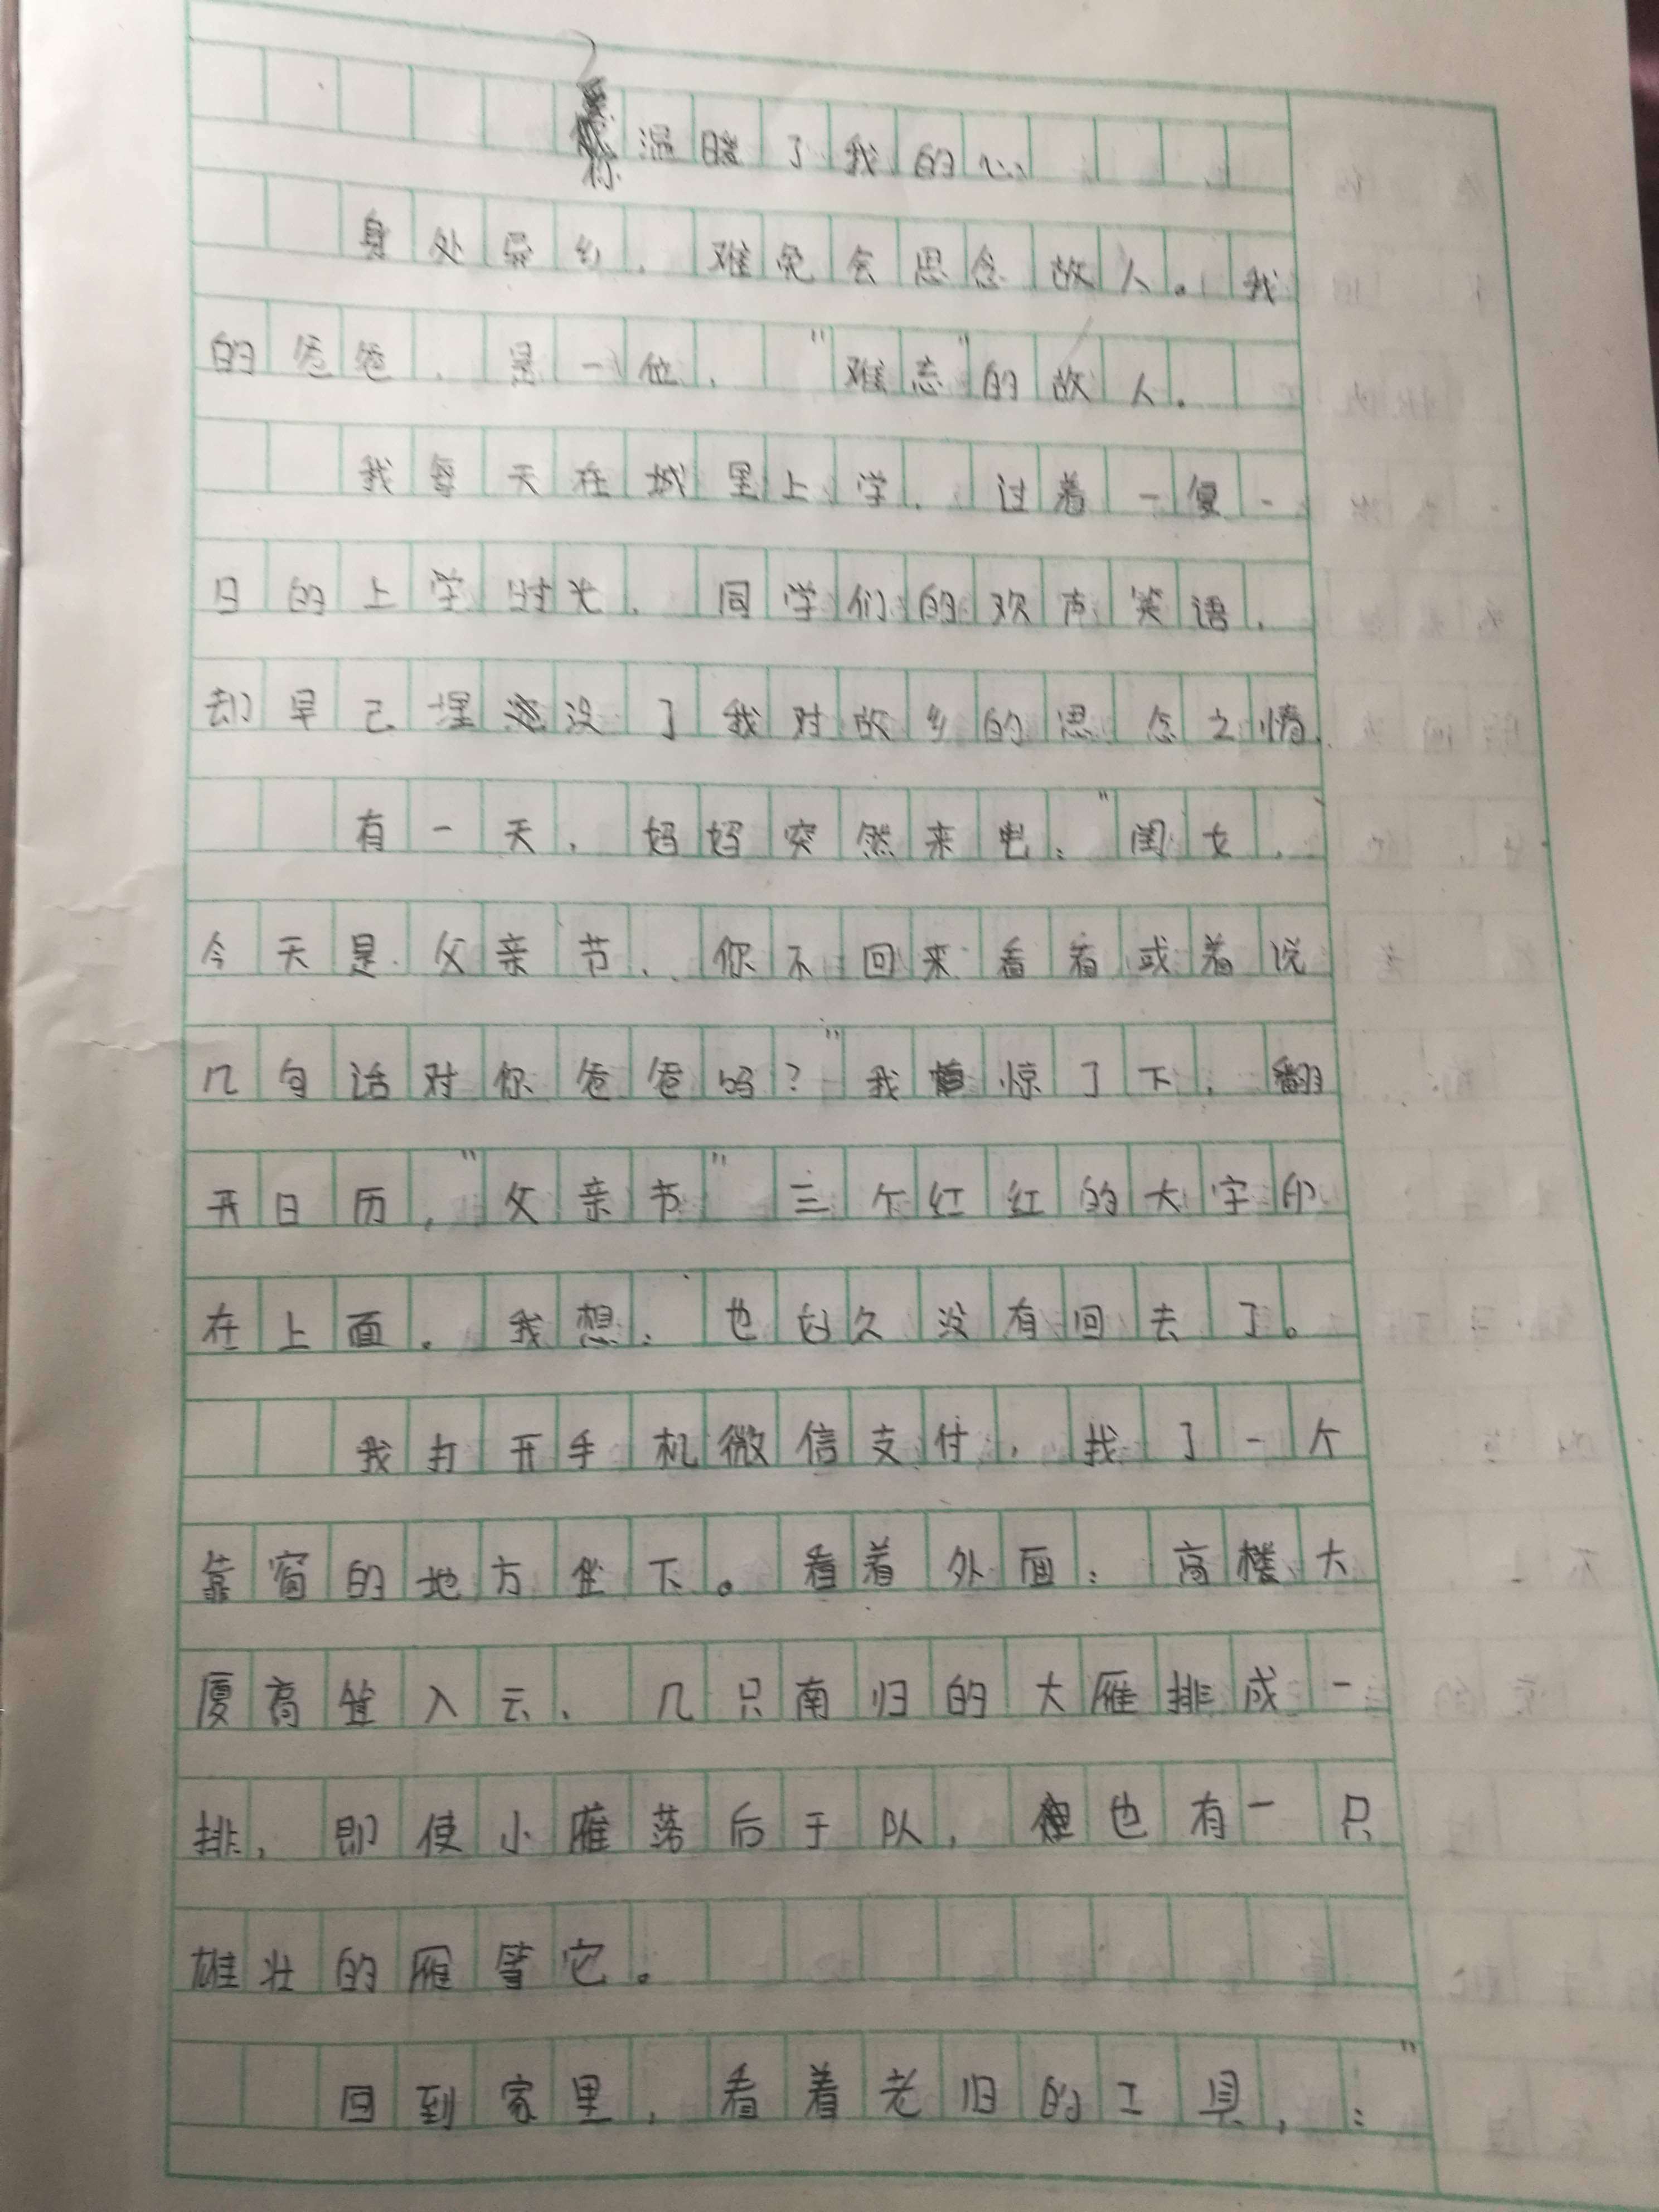 你温暖了我的心
身处异乡，难免会思念故人。我
的爸爸，是一位，“难忘”的故人。
我每天在城里上学，过着一复一
日的上学时光，同学们的欢声笑语，
却早已埋没了我对故乡的思念之情，
有一天，妈妈突然来电：“闺女，
今天是父亲节，你不回来看看或着说
几句话对你爸爸吗？”我惊了下，翻
开日历，“父亲节”三个红红的大字印
在上面。我想：也好久没有回去了。
我打开手机微信支付，找了一个
靠窗的地方坐下。看着外面：高楼大
厦高耸入云，几只南归的大雁排成一
排，即使小雁落后于队，但也有一只
雄壮的雁等它。
回到家里，看着老旧的工具，：“